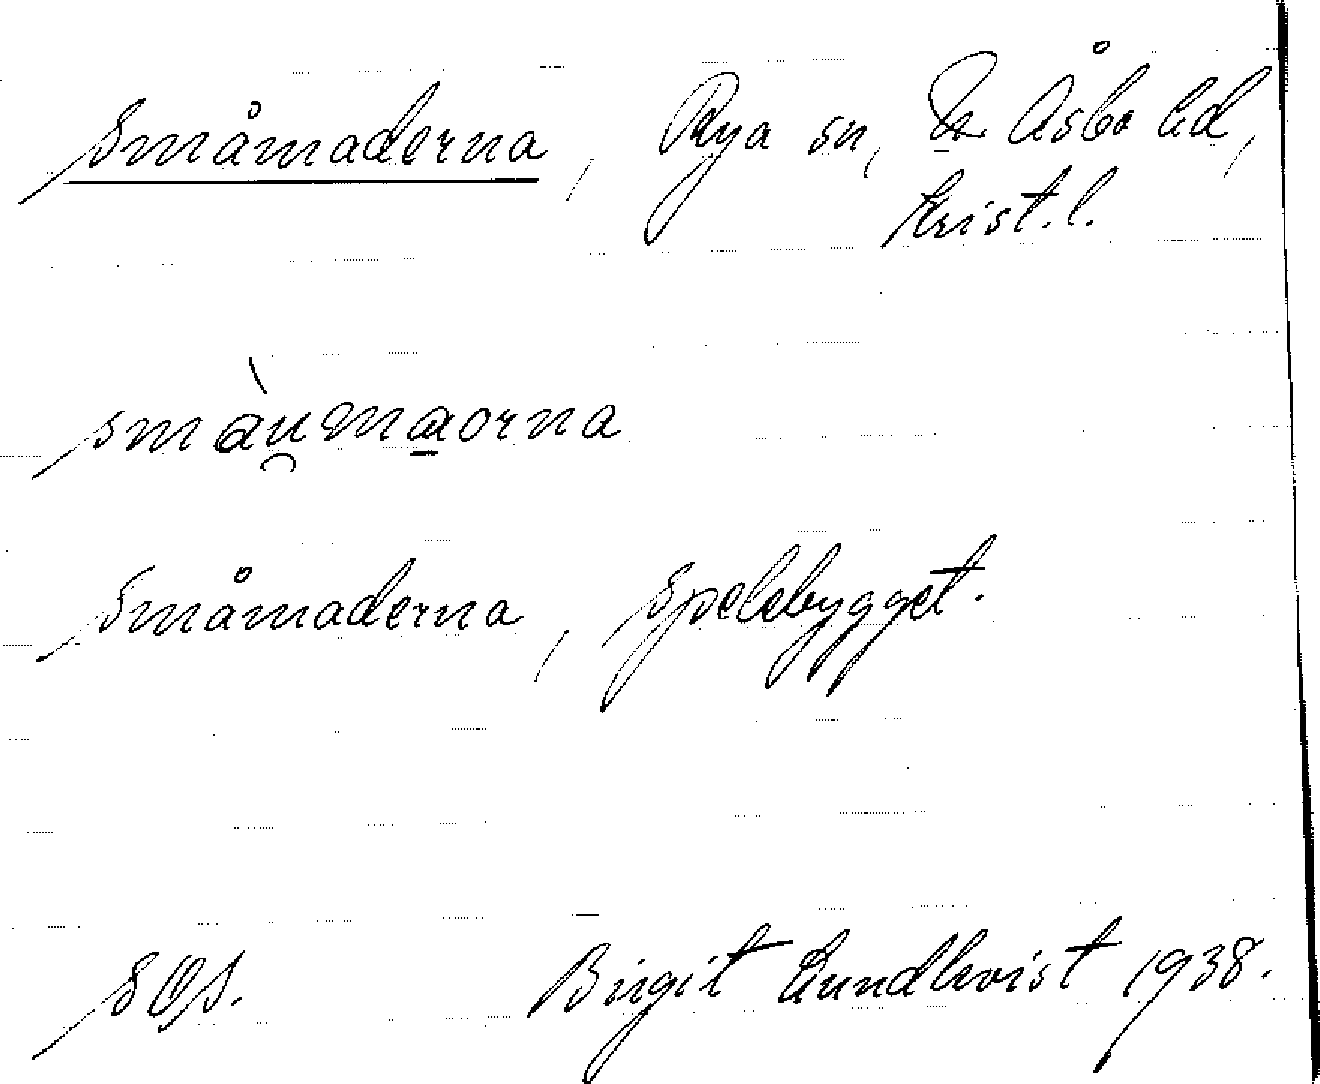 Småmaderna, Rya sn, N. Åsbo hd,
Krist. l.
smàu̯ma̱orna
Småmaderna, Spelebygget.
SOS. Birgit Lundkvist 1938.